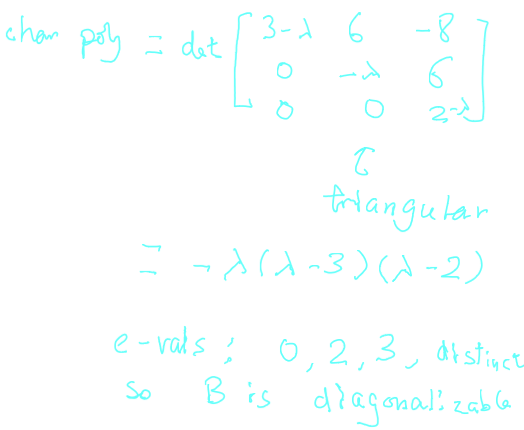 char poly = det [ 3-λ 6 -8
0 -λ 6
0 0 2-λ ]
triangular
= -λ(λ-3)(λ-2)
e-vals: 0, 2, 3, distinct
so B is diagonalizable